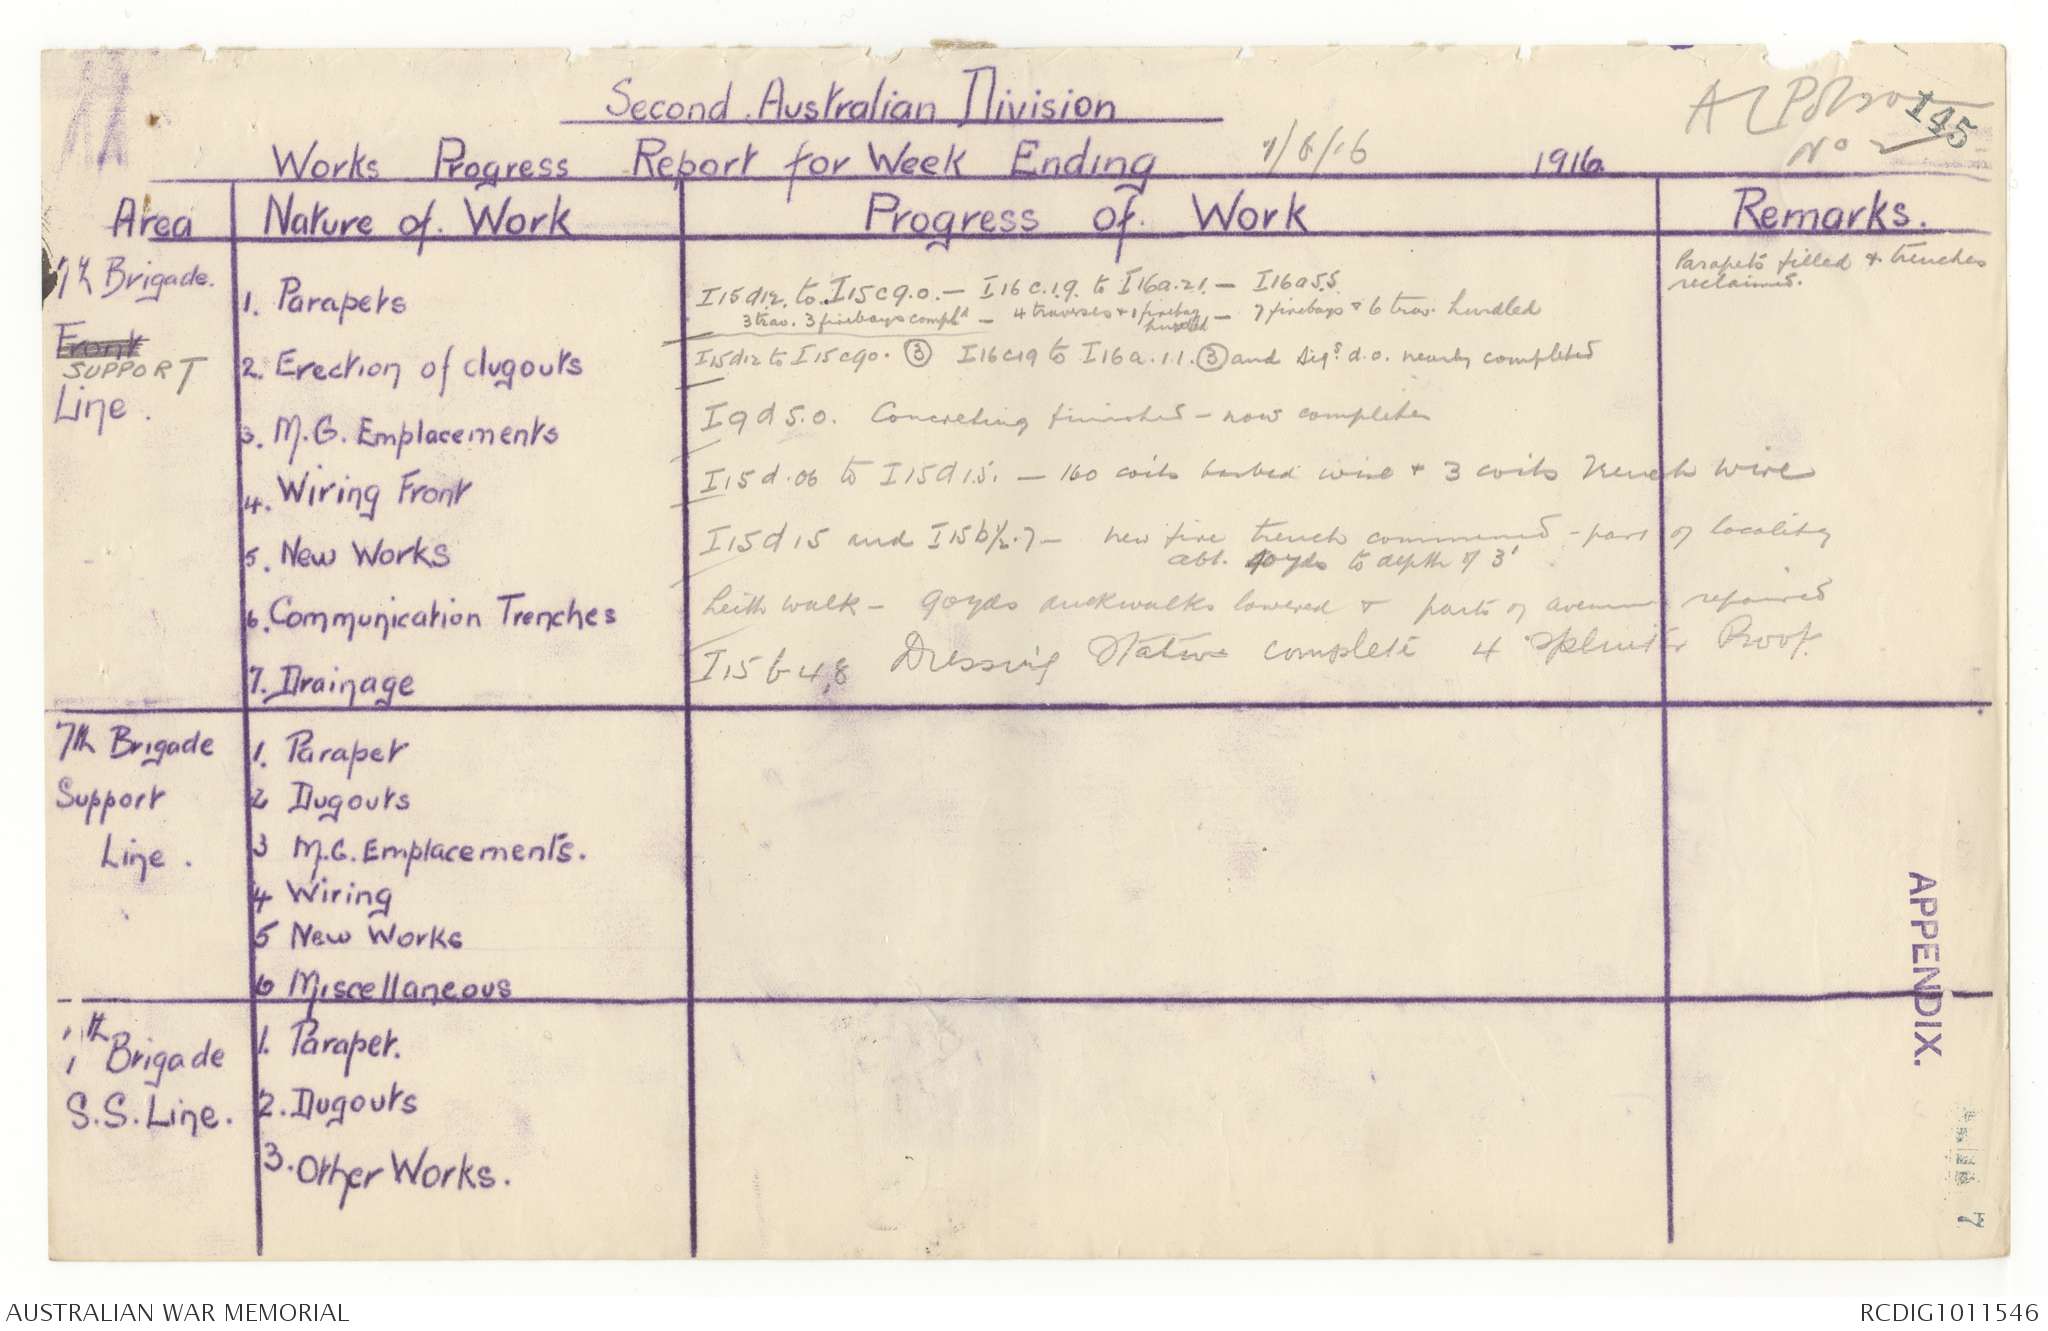 Second Australian Division
Works Progress Report for Week Ending 7/6/16 1916.
145
No
Area
Nature of Work
Progress of Work
Remarks.
7th Brigade.
Front
SUPPORT
Line.
1. Parapets
I15d12. to I15c90. — I16c.19. to I16a.21. — I16a55
3 trav. 3 firebays compltd — 4 traverses & 1 firebay hurdled — 7 firebays & 6 trav. hurdled
Parapets filled & trenches
reclaimed.
2. Erection of dugouts
I15d12 to I15c90. (3) I16c19 to I16a.11. (3) and Sigs. d.o. nearly completed
3. M.G. Emplacements
I9d5.0. Concreting finished — now complete
4. Wiring Front
I15d.06 to I15d15. — 160 coils barbed wire & 3 coils French wire
5. New Works
I15d15 and I15b½.7 — new fire trench commenced - part of locality
abt. 40 yds to depth of 3'
6. Communication Trenches
Leith walk — 90yds duckwalks lowered & parts of avenue repaired
7. Drainage
I15b4,8 Dressing Station complete 4 Splinter Proof.
7th Brigade
Support
Line.
1. Parapet
2 Dugouts
3 M.G. Emplacements.
4 Wiring
5 New Works
6 Miscellaneous
7th Brigade
S.S. Line.
1. Parapet.
2. Dugouts
3. Other Works.
APPENDIX.
7
AUSTRALIAN WAR MEMORIAL
RCDIG1011546